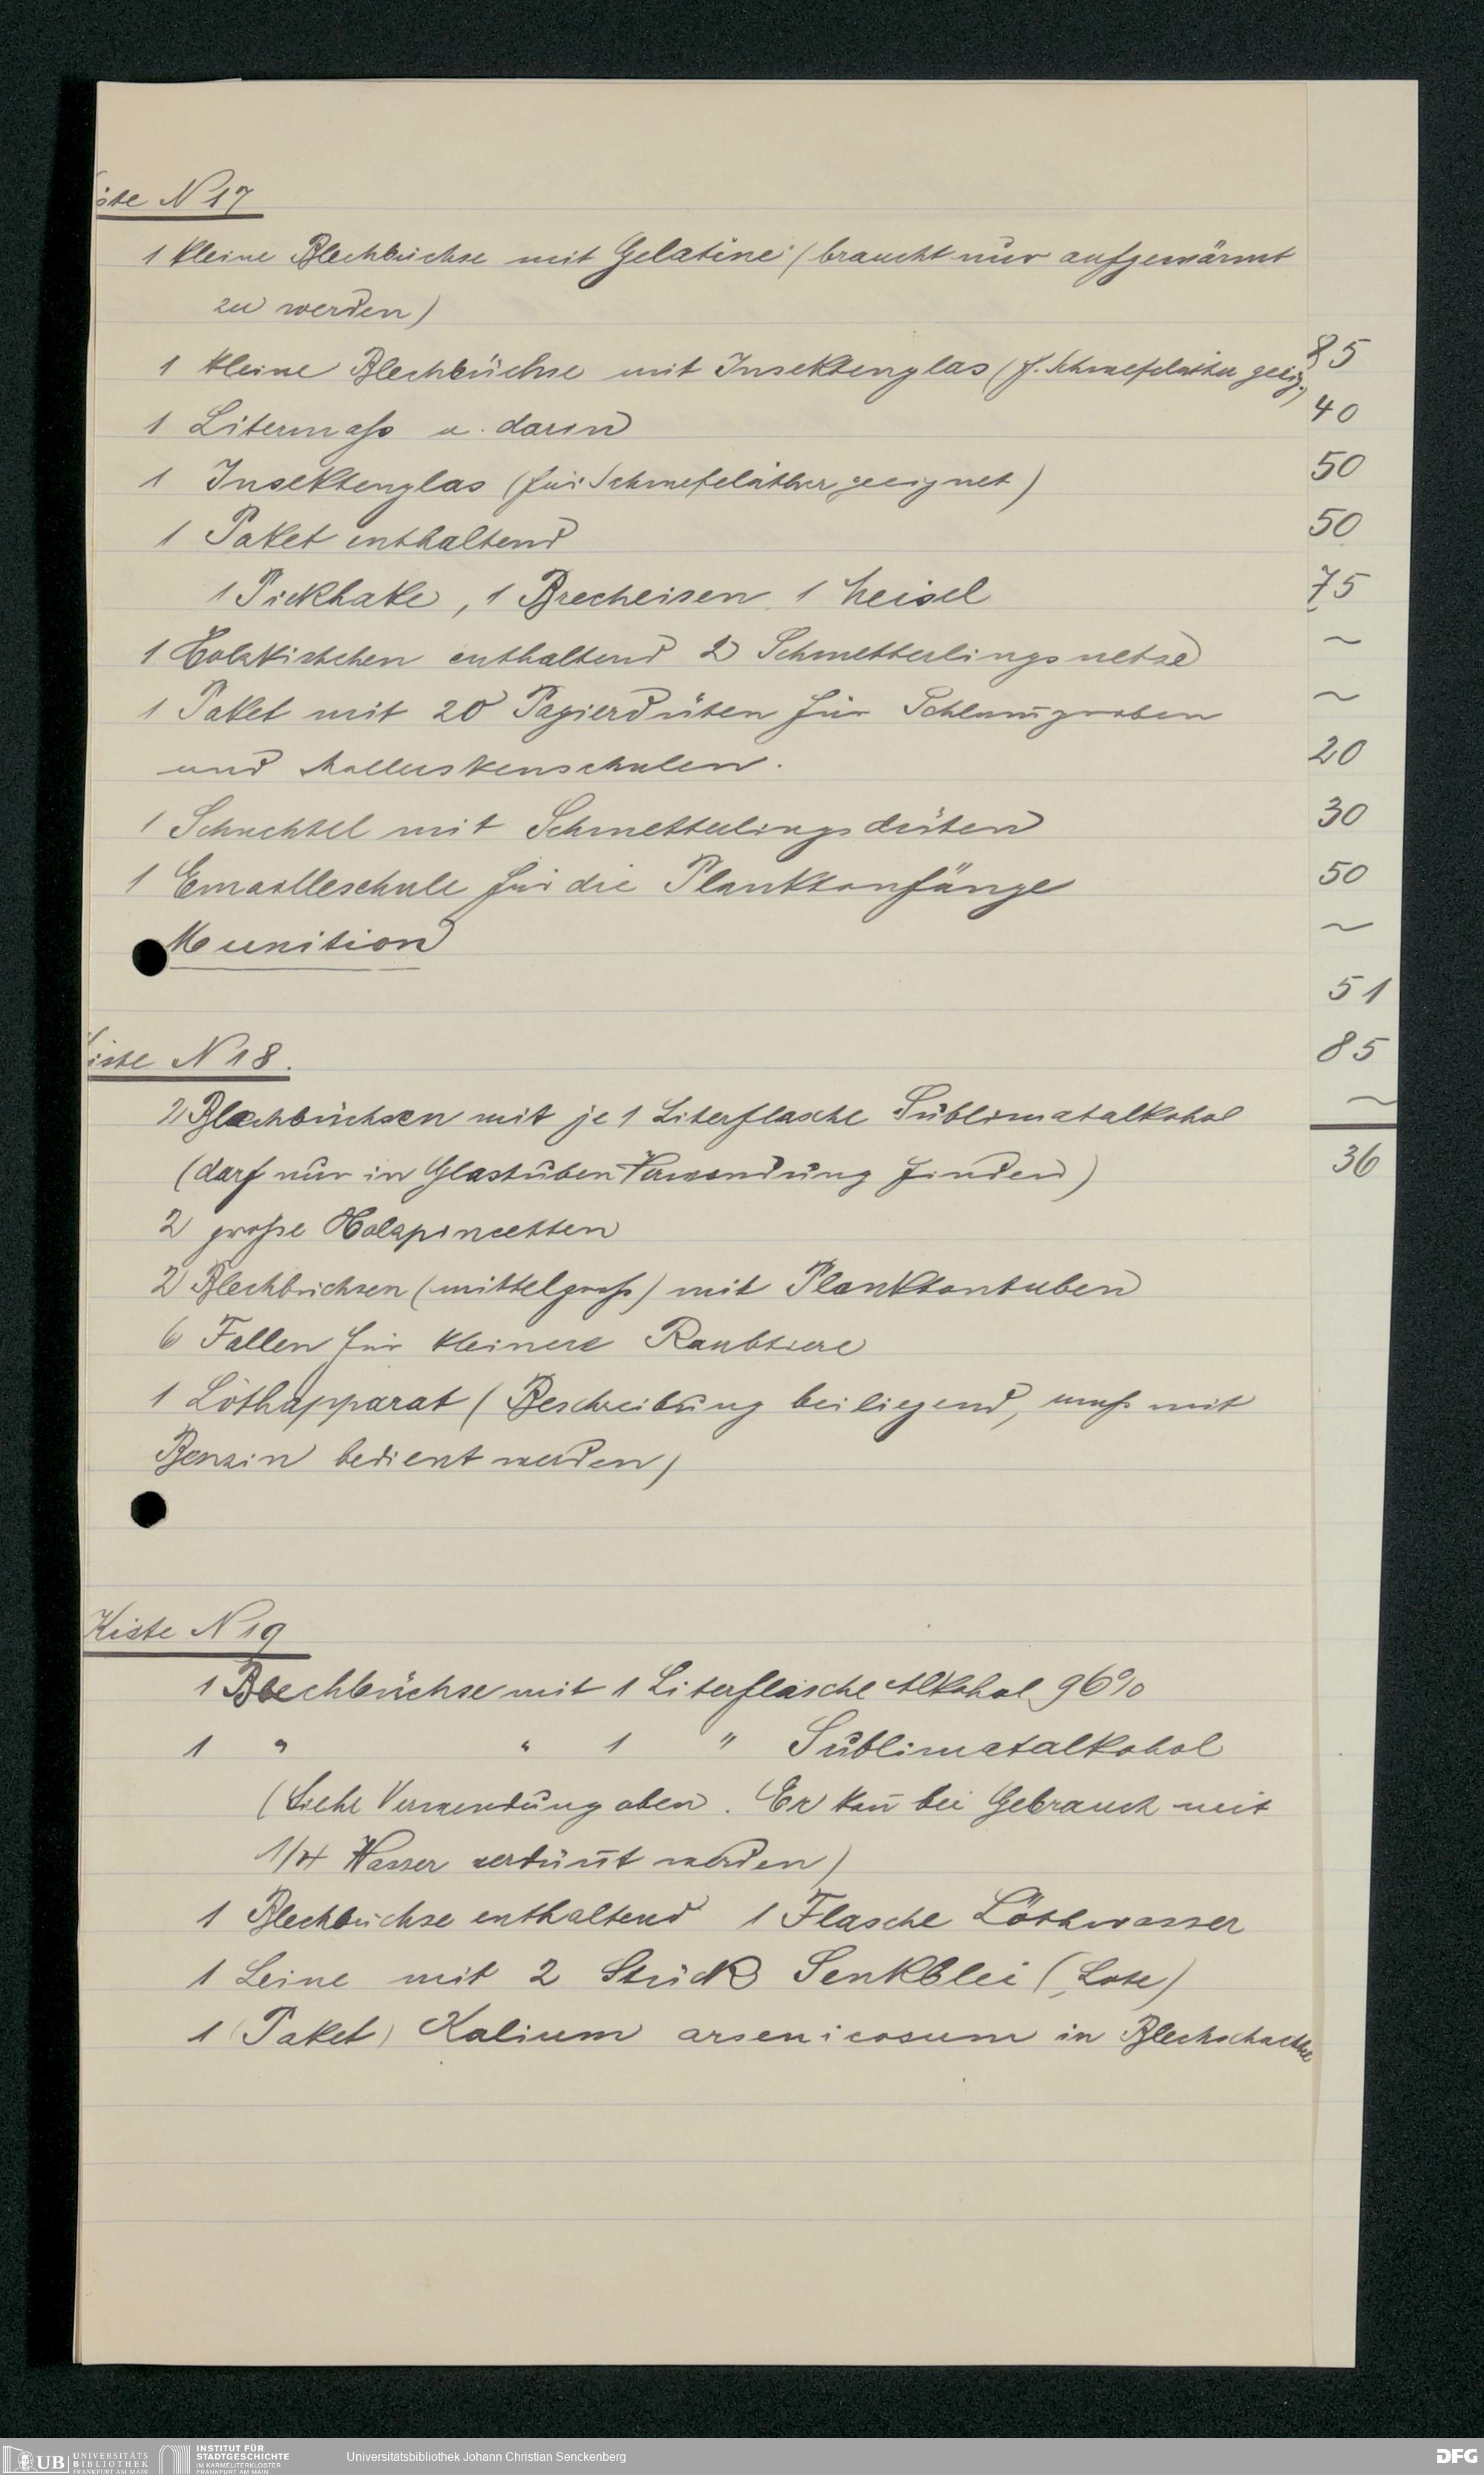 iste N 17
1 kleine Blechbüchse mit Gelatine (braucht nur aufgewärmt
zu werden)
1 kleine Blechbüchse mit Insektenglas (f. Schwefeläther geeig.)
1 Litermaß u. darin
1 Insektenglas (für Schwefeläther geeignet)
1 Paket enthaltend
1 Pickhake, 1 Brecheisen, 1 Meisel
1 Holzkistchen enthaltend 2 Schmetterlingsnetze
1 Paket mit 20 Papierdüten für Schlam̄proben
und Molluskenschalen.
1 Schachtel mit Schmetterlingsdüten
1 Emailleschale für die Planktonfänge
Munition
iste N 18.
2 Blechbüchsen mit je 1 Literflasche Sublimatalkohol
(darf nur in Glastuben Verwendung finden)
2 große Holzpincetten
2 Blechbüchsen (mittelgroß) mit Planktontuben
6 Fallen für kleinere Raubtiere
1 Löthapparat (Beschreibung beiliegend, muß mit
Benzin bedient werden)
Kiste N 19
1 Blechbüchse mit 1 Literflasche Alkohol 96%
1 " " 1 " Sublimatalkohol
(Siehe Verwendung oben. Er kan̄ bei Gebrauch mit
1/4 Wasser verdün̄t werden)
1 Blechbüchse enthaltend 1 Flasche Löthwasser
1 Leine mit 2 Stück Senkblei (Lote)
1 (Paket) Kalium arsenicosum in Blechschachtel
85
40
50
50
75
~
~
20
30
50
~
51
85
~
36
UB UNIVERSITÄTS
BIBLIOTHEK
FRANKFURT AM MAIN
INSTITUT FÜR
STADTGESCHICHTE
IM KARMELITERKLOSTER
FRANKFURT AM MAIN
Universitätsbibliothek Johann Christian Senckenberg
DFG